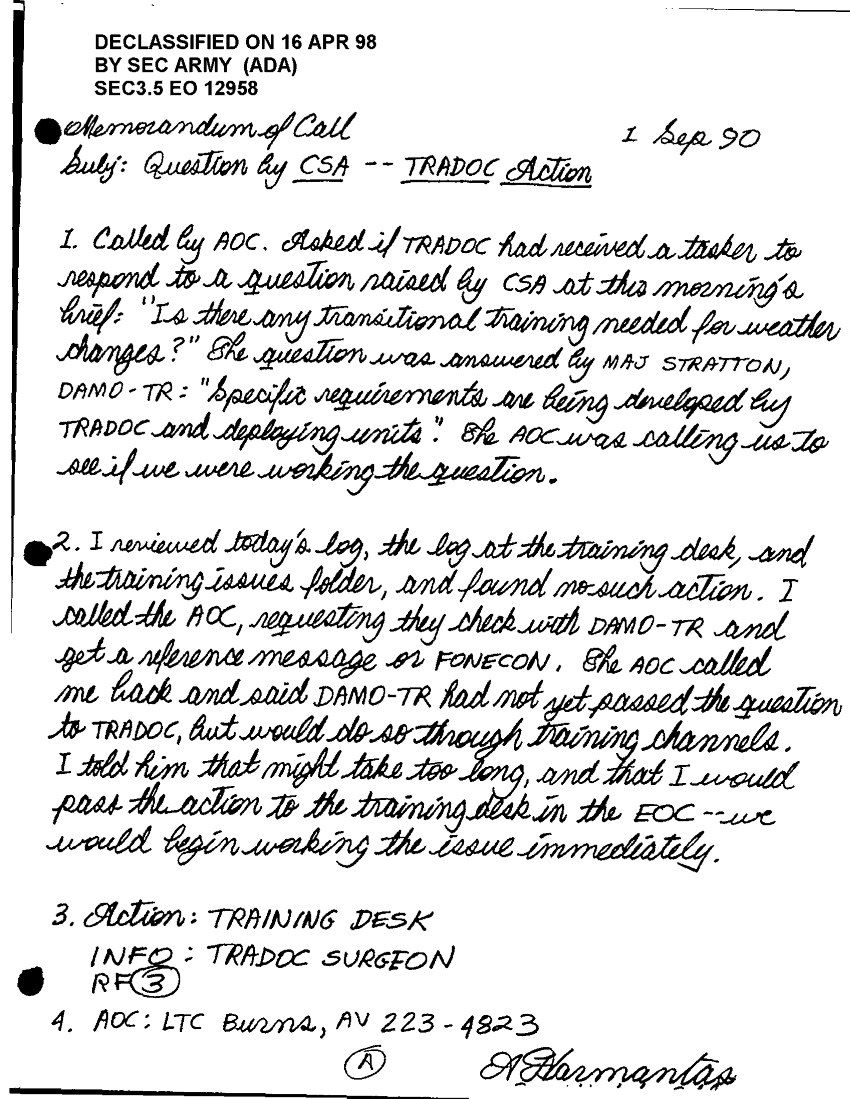 DECLASSIFIED ON 16 APR 98
BY SEC ARMY (ADA)
SEC3.5 EO 12958
Memorandum of Call 1 Sep 90
Subj: Question by CSA -- TRADOC Action
1. Called by AOC. Asked if TRADOC had received a tasker to
respond to a question raised by CSA at this morning's
brief: "Is there any transitional training needed for weather
changes?" The question was answered by MAJ STRATTON,
DAMO-TR: "Specific requirements are being developed by
TRADOC and deploying units". The AOC was calling us to
see if we were working the question.
2. I reviewed today's log, the log at the training desk, and
the training issues folder, and found no such action. I
called the AOC, requesting they check with DAMO-TR and
get a reference message or FONECON. The AOC called
me back and said DAMO-TR had not yet passed the question
to TRADOC, but would do so through training channels.
I told him that might take too long, and that I would
pass the action to the training desk in the EOC -- we
would begin working the issue immediately.
3. Action: TRAINING DESK
INFO: TRADOC SURGEON
RF 3
4. AOC: LTC Burns, AV 223-4823
A
A Harmantas